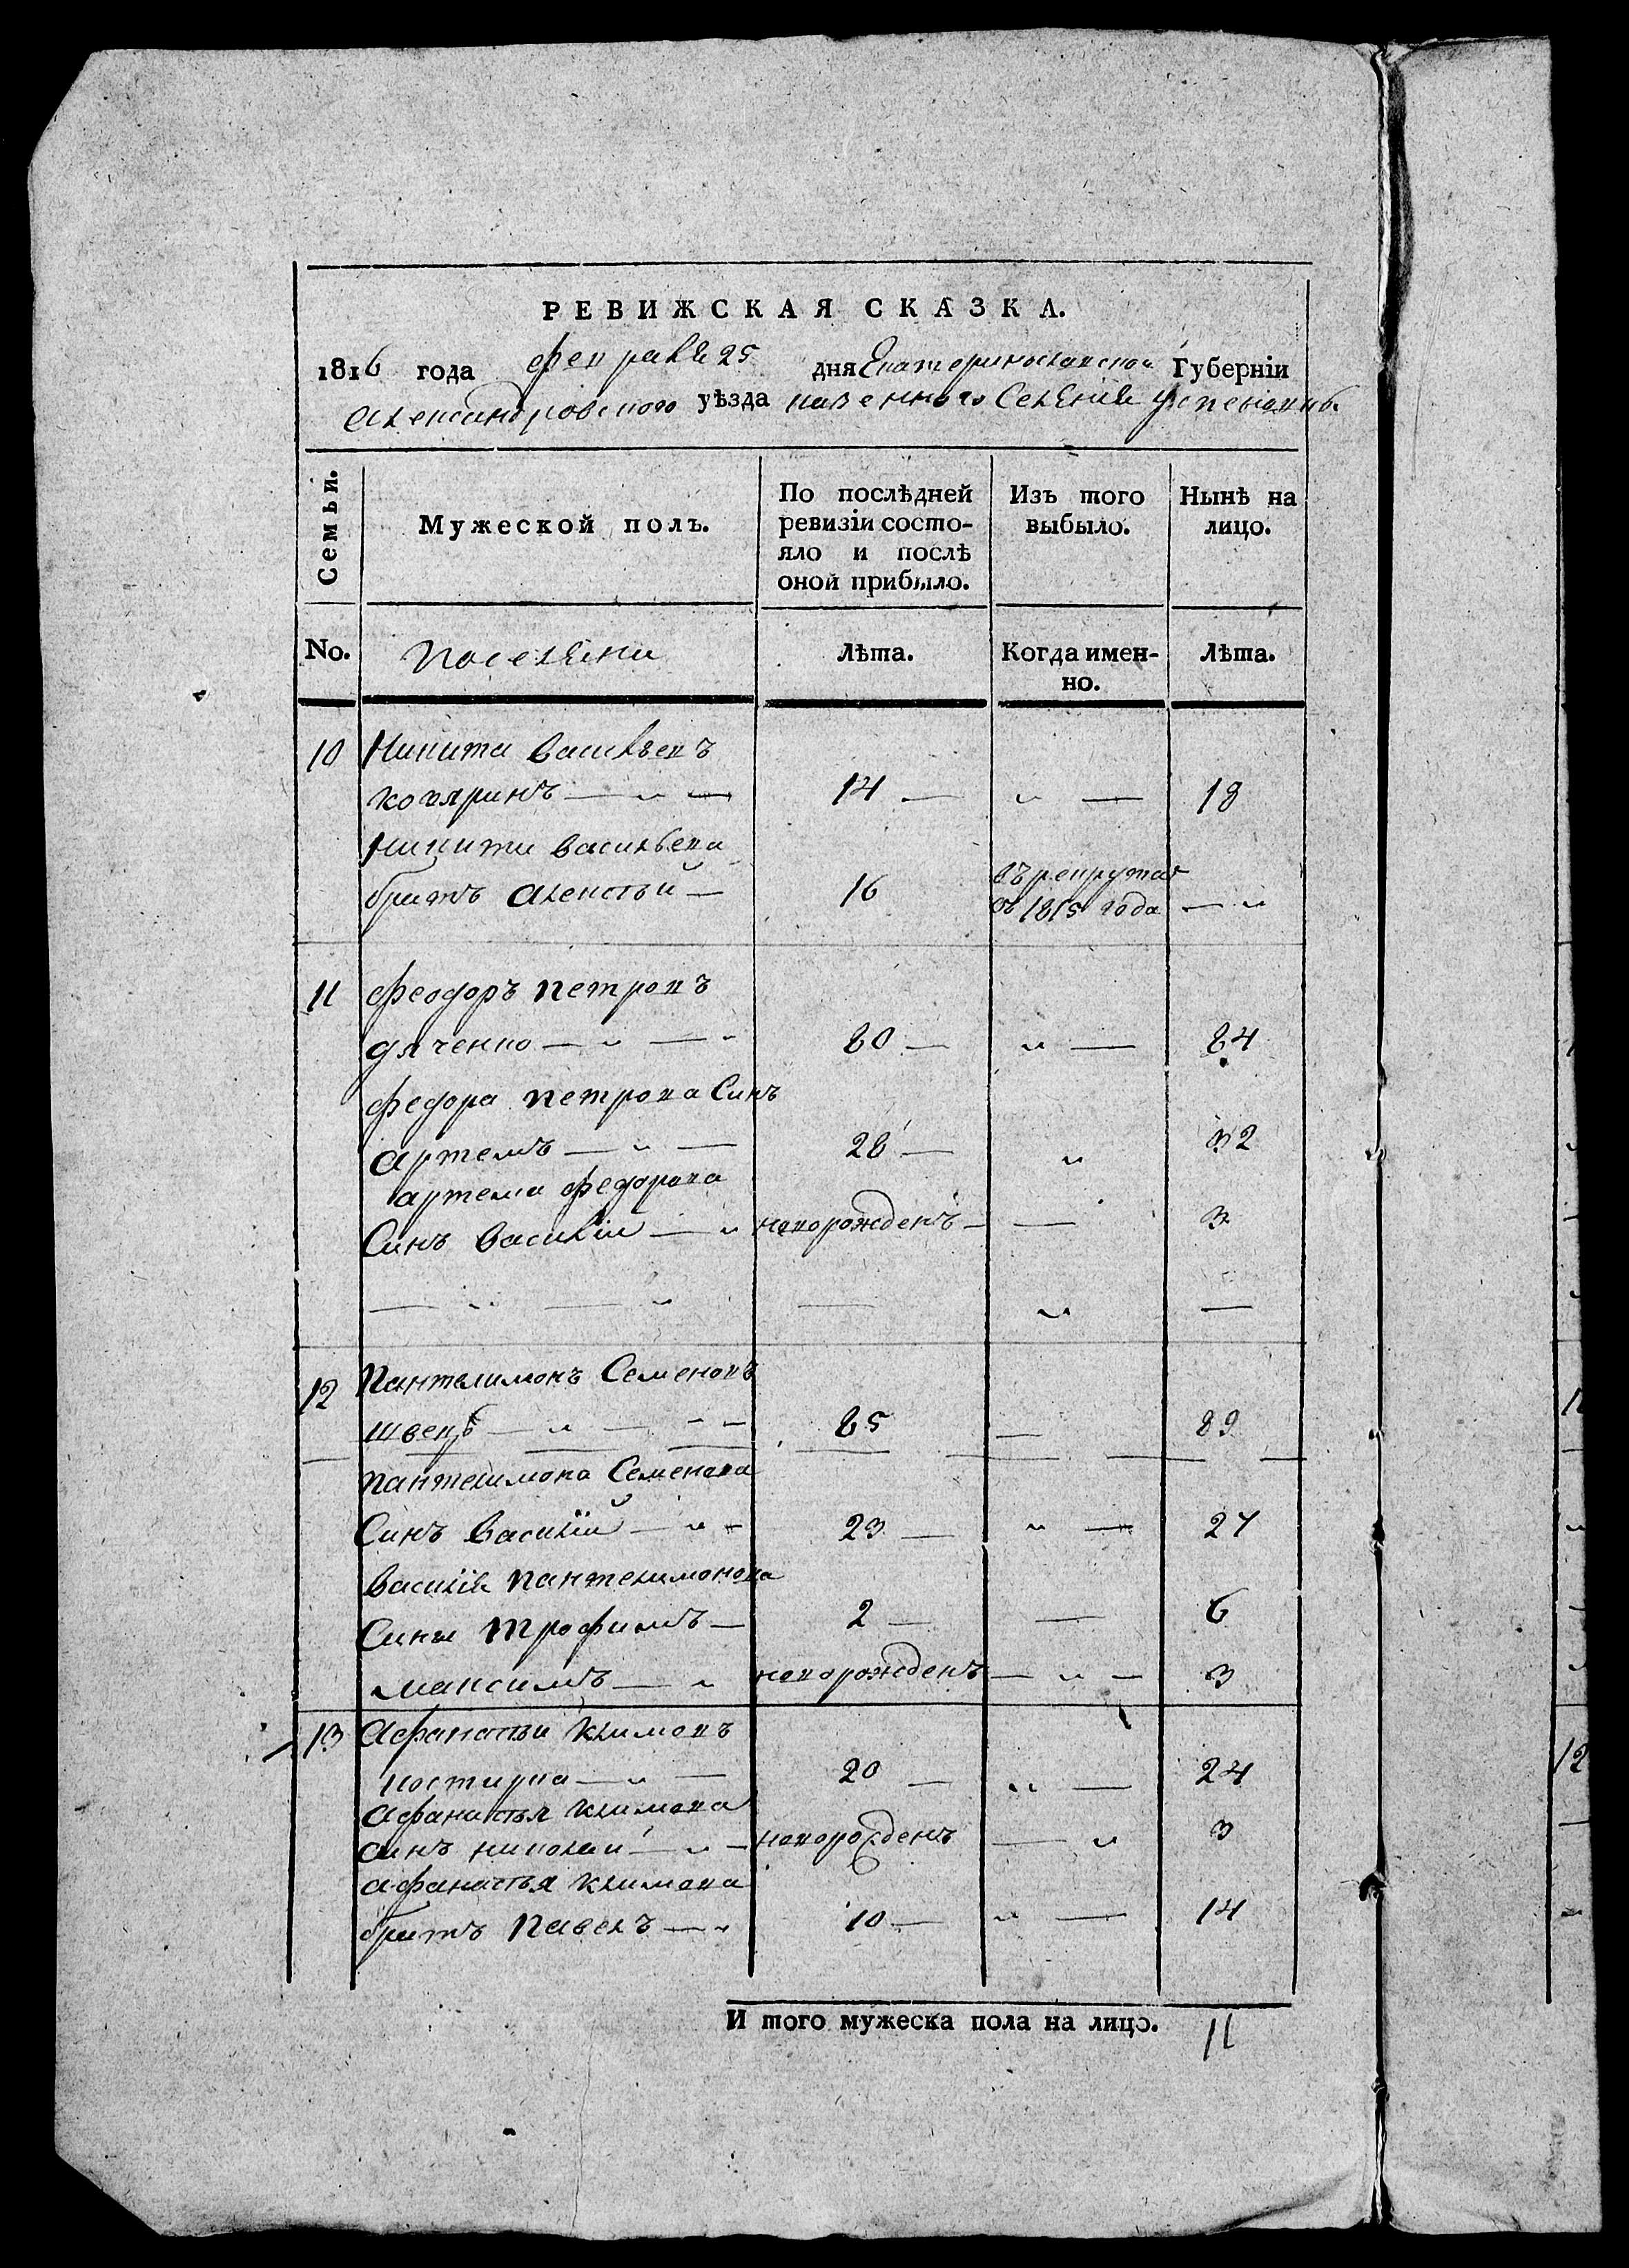 РЕВИЖСКАЯ СКАЗКА.
1816 года Февраля 25 дня Екатеринославской Губерніи
Александровского уѣзда казенного Селения Успеновки
Семьи. Мужеской полъ. По послѣдней ревизіи состояло и послѣ оной прибыло. Изъ того выбыло. Нынѣ на лицо.
No. Поселяни Лѣта. Когда именно. Лѣта.
10 Никита Васильевъ
14 — „ — 18
Никити Васильева
братъ Алексѣй — 16 въ рекрути
въ 1815 года — „
11 Феодоръ Петровъ
дяченко — „ — „ 80 — „ — 84
Федора Петрова Синъ
Артемъ — „ — 28 — „ 32
Артема Федорова
Синъ Василій — „ новорожденъ — — 3
— „ — „ — „ —
12 Пантелимонъ Семеновъ
швецъ — „ — - - 85 — 89
Пантелимона Семенова
Синъ Василій — „ - 23 — „ — 27
Василія Пантелимонова
Сины Трофимъ — 2 — — 6
Максимъ — „ новорожденъ — „ — 3
13 Афанасѣй Климовъ
20 — „ — 24
Афанасья Климова
Синъ Николай — „ — новорожденъ — „ 3
Афанасья Климова
братъ Павелъ — „ 10 — „ — 14
И того мужеска пола на лицо. 11